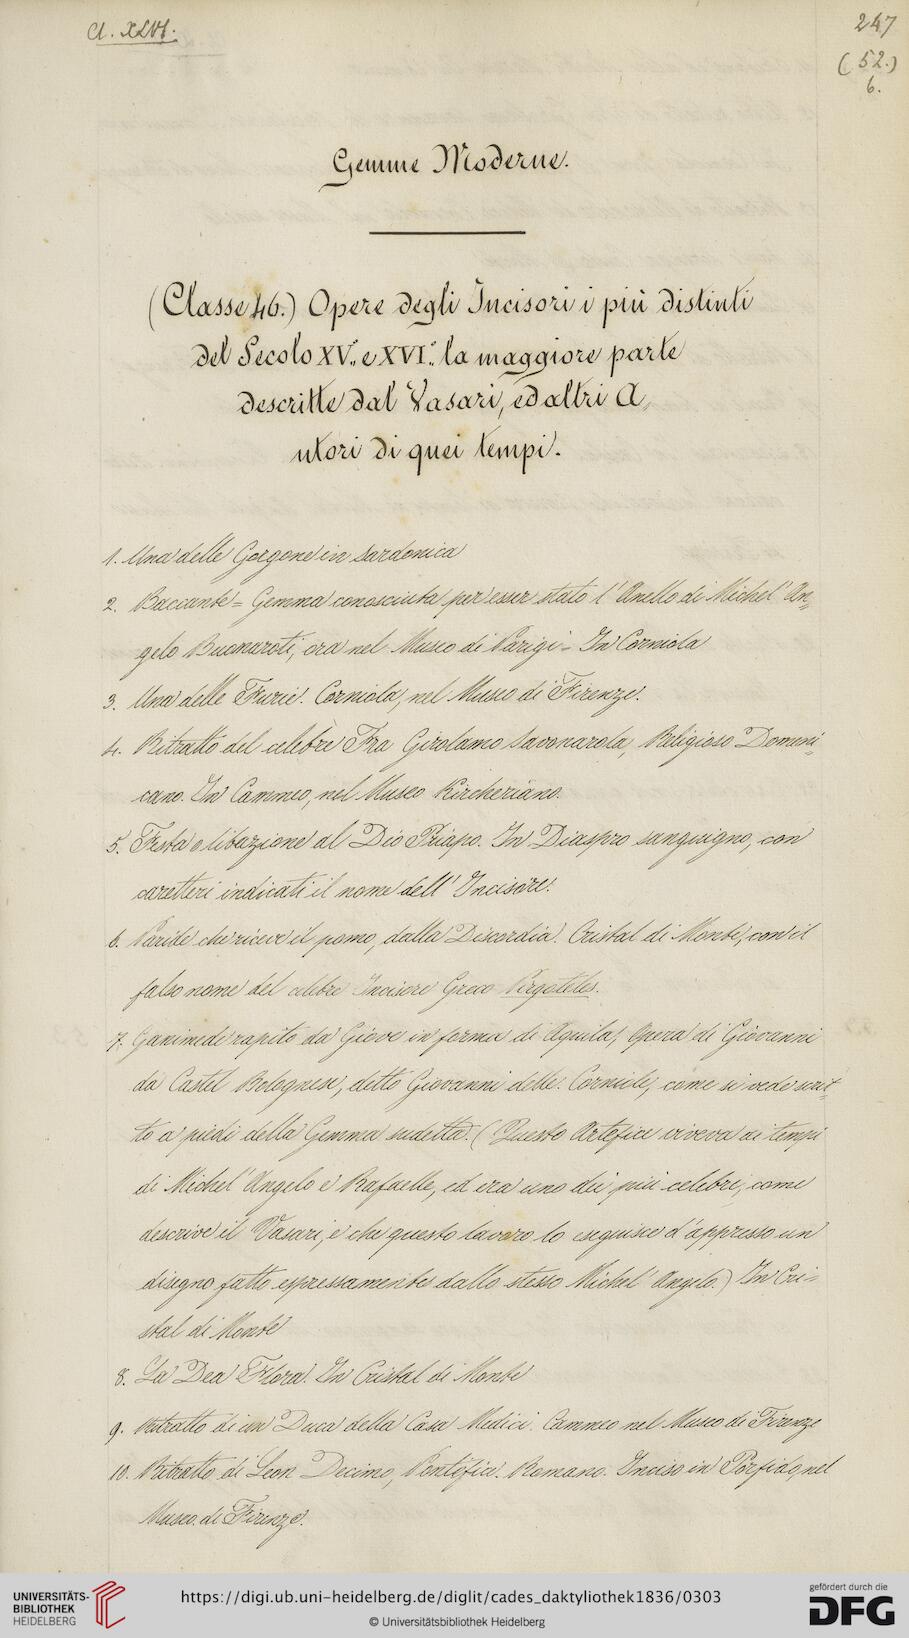 Cl. XLVI.
247
(52.)
6.
Gemme Moderne.
(Classe 46.) Opere degli Incisori i più distinti
del Secolo XV.. e XVI.. la maggiore parte
descritte dal Vasari, ed altri A,
utori di quei tempi.
1. Una delle Gorgone in Sardonica
2. Baccante = Gemma conosciuta per esser stato l'Anello di Michel' An=
gelo Buonaroti, ora nel Museo di Parigi = In Corniola
3. Una delle Furie. Corniola, nel Museo di Firenze.
4. Ritratto del celebre Fra Girolamo Savonarola, Religioso Domeni=
cano. In Cammeo, nel Museo Kircheriano.
5. Festa o libazione al Dio Priapo. In Diaspro sanguigno, con
caretteri indicati il nome dell' Incisore.
6. Paride che riceve il pomo, dalla Discordia. Cristal di Monte, con il
falso nome del celebre Incisore Greco Pirgoteles.
7. Ganimede rapito da Giove in forma di Aquila, Opera di Giovanni
da Castel Bolognese, detto Giovanni delle Corniole, come si vede scrit=
to a' piedi della Gemma sudetta. (Questo Artefice viveva ai tempi
di Michel' Angelo e Rafaelle, ed era uno dei più celebri, come
descrive il Vasari, e che questo lavoro lo eseguisce d'appresso un
disegno fatto espressamente dallo stesso Michel' Angelo.) In Cri=
stal di Monte
8. La Dea Flora. In Cristal di Monte
9. Ritratto di un Duca della Casa Medici. Cammeo nel Museo di Firenze
10. Ritratto di Leon Decimo, Pontefice Romano. Inciso in Porfido, nel
Museo di Firenze.
UNIVERSITÄTS-
BIBLIOTHEK
HEIDELBERG
https://digi.ub.uni-heidelberg.de/diglit/cades_daktyliothek1836/0303
© Universitätsbibliothek Heidelberg
gefördert durch die
DFG